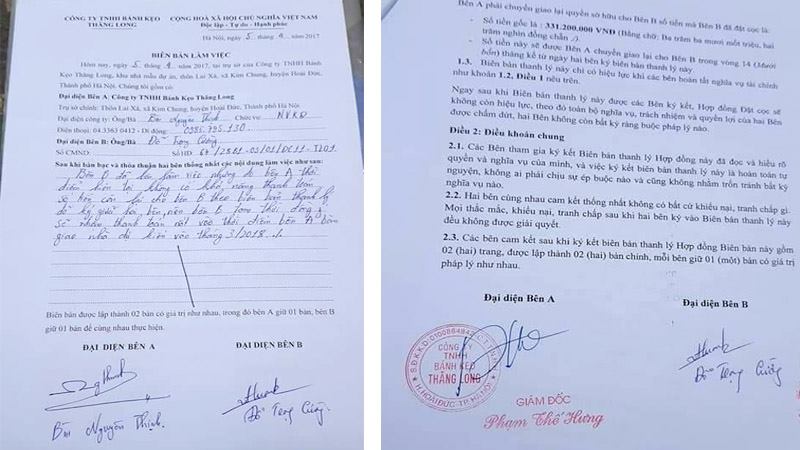 CÔNG TY TNHH BÁNH KẸO
THĂNG LONG
CỘNG HOÀ XÃ HỘI CHỦ NGHĨA VIỆT NAM
Độc lập - Tự do - Hạnh phúc
Hà Nội, ngày 5 tháng 9 năm 2017
BIÊN BẢN LÀM VIỆC
Hôm nay, ngày 5 tháng 9 năm 2017, tại trụ sở của Công ty TNHH Bánh
Kẹo Thăng Long, khu nhà mẫu dự án, thôn Lai Xá, xã Kim Chung, huyện Hoài Đức,
Thành phố Hà Nội. Chúng tôi gồm có:
Đại diện Bên A: Công ty TNHH Bánh Kẹo Thăng Long
Trụ sở chính: Thôn Lai Xá, xã Kim Chung, huyện Hoài Đức, Thành phố Hà Nội
Đại diện công ty: Ông/Bà Bùi Nguyên Thịnh Chức vụ: NVKD
Điện thoại: 04.3363 0412 - Di động: 0985.795.130
Đại diện Bên B: Ông/Bà Đỗ Trọng Cường
Số CMND: Số HĐ
Sau khi bàn bạc và thỏa thuận hai bên thống nhất các nội dung làm việc như sau:
Bên B đã lên làm việc nhưng do bên A thời
điểm hiện tại không có khả năng thanh toán
số tiền còn lại cho bên B theo biên bản thanh lý
đã ký giữa hai bên, nên bên B
sẽ nhận thanh toán vào thời điểm bên A bàn
giao nhà dự kiến vào tháng 3/2018
Biên bản được lập thành 02 bản có giá trị như nhau, trong đó bên A giữ 01 bản, bên B
giữ 01 bản để cùng nhau thực hiện.
ĐẠI DIỆN BÊN A
ĐẠI DIỆN BÊN B
Bùi Nguyên Thịnh
Đỗ Trọng Cường
Bên A phải chuyển giao lại quyền sở hữu cho Bên B số tiền mà Bên B đã đặt cọc là:
- Số tiền gốc là : 331.200.000 VNĐ (Bằng chữ: Ba trăm ba mươi mốt triệu, hai
trăm nghìn đồng chẵn ./).
- Số tiền này sẽ được Bên A chuyển giao lại cho Bên B trong vòng 14 (Mười
bốn) tháng kể từ ngày hai bên ký biên bản thanh lý này
1.3. Biên bản thanh lý này chỉ có hiệu lực khi các bên hoàn tất nghĩa vụ tài chính
như khoản 1.2, Điều 1 nêu trên.
Sau khi Biên bản thanh lý này được các Bên ký kết, Hợp đồng Đặt cọc sẽ
không còn hiệu lực, theo đó toàn bộ nghĩa vụ, trách nhiệm và quyền lợi của hai Bên
được chấm dứt, hai Bên không còn bất kỳ ràng buộc pháp lý nào.
Điều 2: Điều khoản chung
2.1. Các Bên tham gia ký kết Biên bản thanh lý Hợp đồng này đã đọc và hiểu rõ
quyền và nghĩa vụ của mình, và việc ký kết biên bản thanh lý này là hoàn toàn tự
nguyện, không ai phải chịu sự ép buộc nào và cũng không nhằm trốn tránh bất kỳ
nghĩa vụ nào.
2.2. Hai bên cùng nhau cam kết thống nhất không có bất cứ khiếu nại, tranh chấp gì.
Mọi thắc mắc, khiếu nại, tranh chấp sau khi hai bên ký vào Biên bản thanh lý này
đều không được giải quyết.
2.3. Các bên cam kết sau khi ký kết biên bản thanh lý Hợp đồng Biên bản này gồm
02 (hai) trang, được lập thành 02 (hai) bản chính, mỗi bên giữ 01 (một) bản có giá trị
pháp lý như nhau.
Đại diện Bên A
Đại diện Bên B
S.ĐKKD:0100864842-C.T.T.N.H.H
CÔNG TY
TNHH
BÁNH KẸO
THĂNG LONG
H.HOÀI ĐỨC-TP.HÀ NỘI
Đỗ Trọng Cường
GIÁM ĐỐC
Phạm Thế Hưng